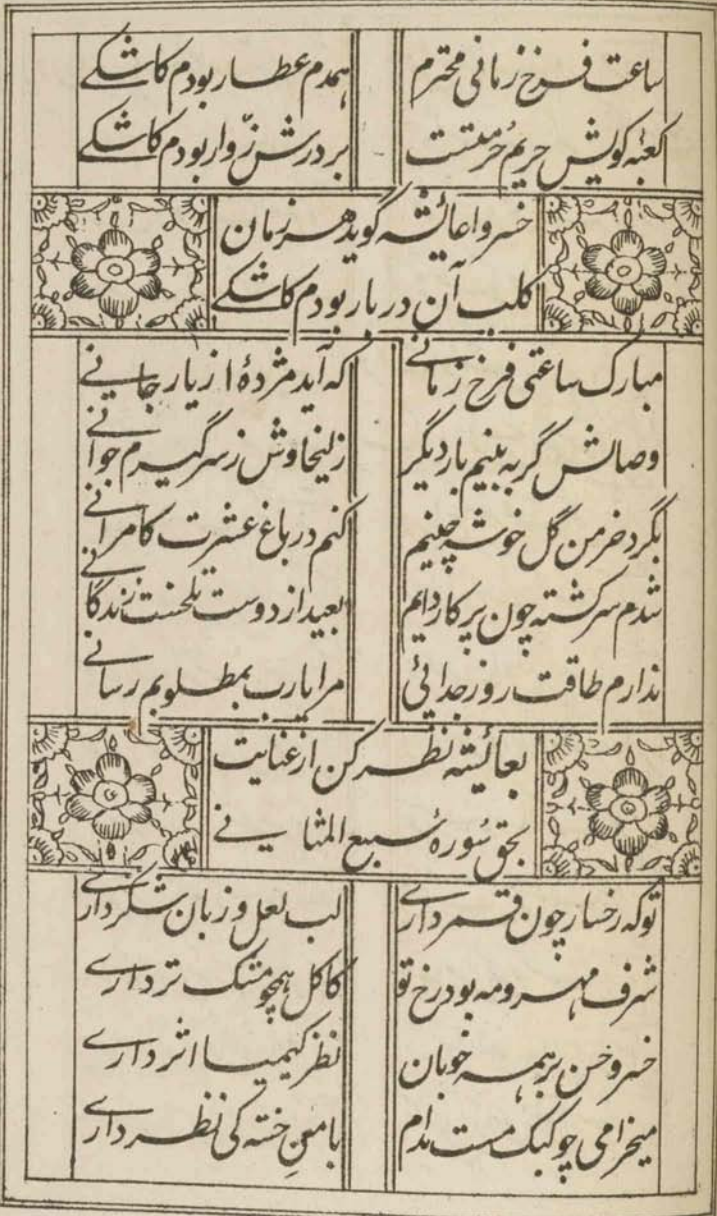 ساعت فرخ زمانی محترم همدم عطار بودم کاشکے
کعبهٔ کویش حریم حُرمتست بر درش زوّار بودم کاشکے
خسروا عائشه گوید هر زمان
کلب آن دربار بودم کاشکے
مبارک ساعتی فرخ زمانے که آید مژدهٔ از یار جانے
وصالش گر به بینم بار دیگر زلیخاوش ز سر گیرم جوانے
بگرد خرمن گل خوشه چینم کنم در باغ عشرت کامرانے
شدم سرگشته چون پرکار دایم بعید از دوست تلخست زندگانے
ندارم طاقت روز جدائی مرا یارب بمطلوبم رسانے
بعائشه نظر کن از عنایت
بحق سُورهٔ سبع المثانے
تو که رخسار چون قمر دارے لب لعل و زبان شکر دارے
شرف مهر و مه بود رخ تو کاکل همچو مشک تر دارے
خسرو حسن بر همه خوبان نظر کیمیا اثر دارے
میخرامی چو کبک مست مدام با منِ خسته کی نظر دارے